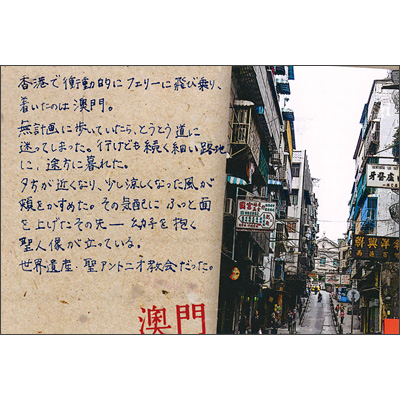 香港で衝動的にフェリーに飛び乗り、
着いたのは澳門。
無計画に歩いていたら、とうとう道に
迷ってしまった。行けども続く細い路地
に、途方に暮れた。
夕方が近くなり、少し涼しくなった風が
頬をかすめた。その気配に ふっと面
を上げたその先 ― 幼子を抱く
聖人像が立っている。
世界遺産・聖アントニオ教会だった。
澳門